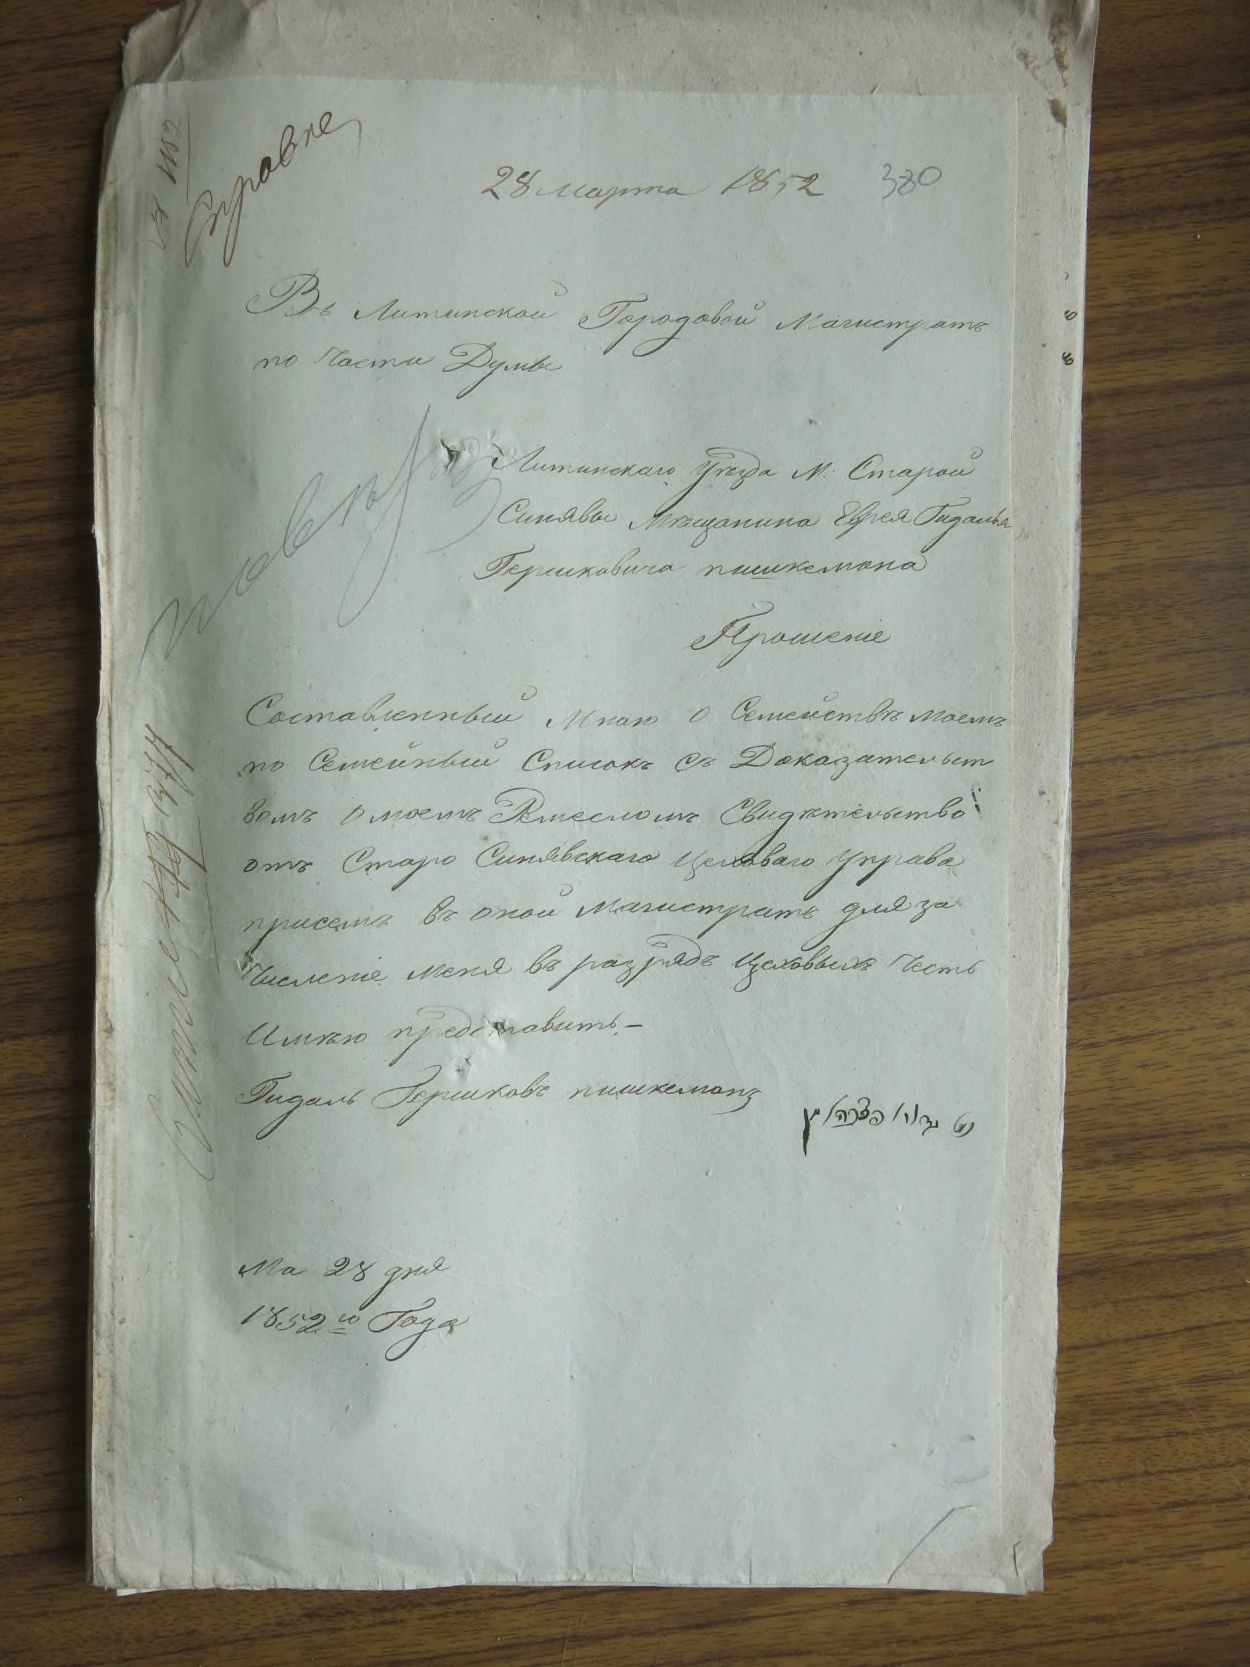 № 1152
Справке
28 марта 1852 380
Въ Литинской Городовой Магистратъ
по Части Думы
Литинскаго Уѣзда М. Старой
Синявы Мѣщанина Еврея Гидалья
Гершковича пишкемана
Прошеніе
Составленный Мною о Семействѣ моемъ
по Семейный Списокъ съ Доказательст
вомъ о моемъ Ремесломъ Свидѣтельство
отъ Старо Синявскаго Цеховаго Управа
присемъ въ оной магистратъ для за
Численіе меня въ разрядъ Цеховыхъ Честь
Имѣю представить.—
Гидаль Гершковъ пишкеманъ
Ма 28 дня
1852 го Года